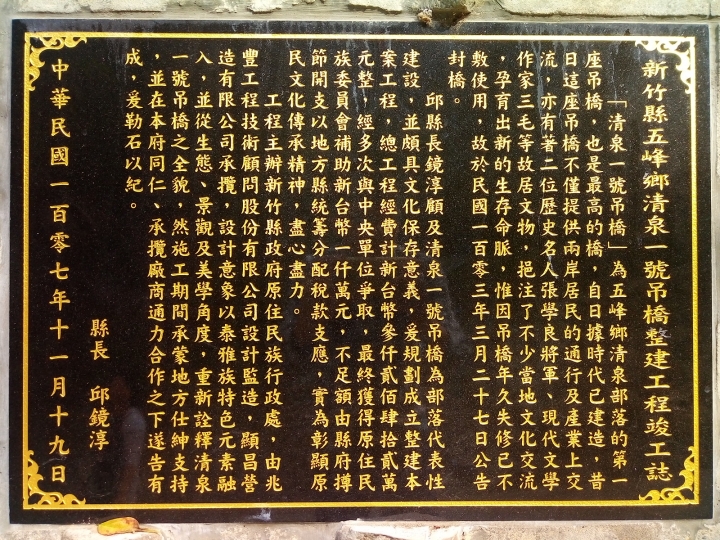 新竹縣五峰鄉清泉一號吊橋整建工程竣工誌
「清泉一號吊橋」為五峰鄉清泉部落的第一
座吊橋，也是最高的橋，自日據時代已建造，昔
日這座吊橋不僅提供兩岸居民的通行及產業上交
流，亦有著二位歷史名人張學良將軍、現代文學
作家三毛等故居文物，挹注了不少當地文化交流
，孕育出新的生存命脈，惟因吊橋年久失修已不
敷使用，故於民國一百零三年三月二十七日公告
封橋。
邱縣長鏡淳顧及清泉一號吊橋為部落代表性
建設，並頗具文化保存意義，爰規劃成立整建本
案工程，總工程經費計新台幣參仟貳佰肆拾貳萬
元整，經多次與中央單位爭取，最終獲得原住民
族委員會補助新台幣一仟萬元，不足額由縣府撙
節開支以地方縣統籌分配稅款支應，實為彰顯原
民文化傳承精神，盡心盡力。
工程主辦新竹縣政府原住民族行政處，由兆
豐工程技術顧問股份有限公司設計監造，顯昌營
造有限公司承攬，設計意象以泰雅族特色元素融
入，並從生態、景觀及美學角度，重新詮釋清泉
一號吊橋之全貌，然施工期間承蒙地方仕紳支持
，並在本府同仁、承攬廠商通力合作之下遂告有
成，爰勒石以紀。
縣長　邱鏡淳
中華民國一百零七年十一月十九日